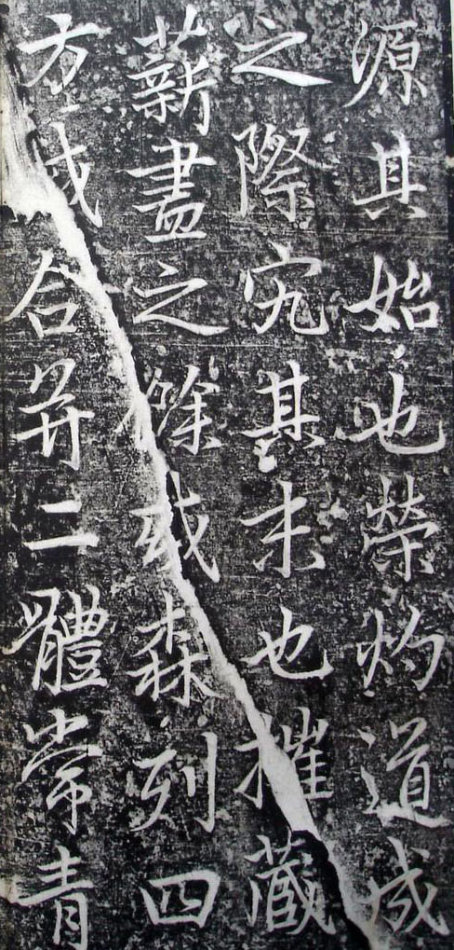 源其始也榮灼道成
之際究其末也摧藏
薪盡之餘或森列四
方或合并二體常青